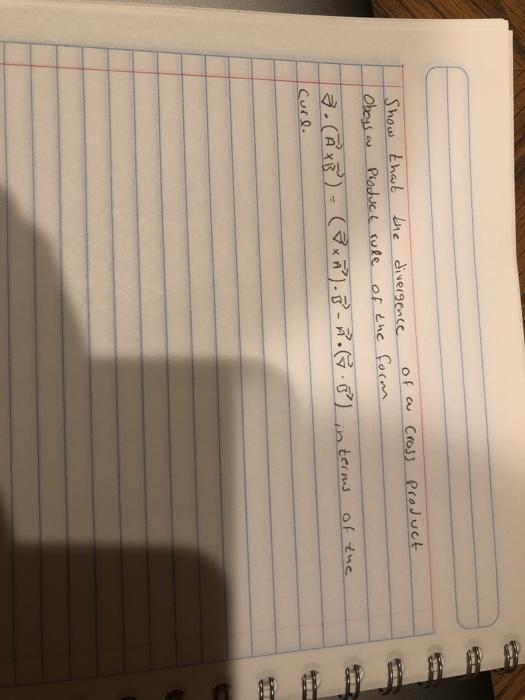 Show that the divergence of a cross product
Obeys a Product rule of the form
∇⃗ · (A⃗ × B⃗) = (∇⃗ × A⃗) · B⃗ - A⃗ · (∇⃗ · B⃗) in terms of the
curl.